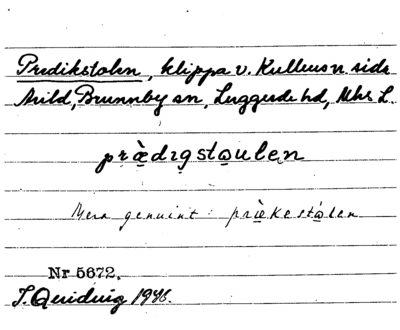 Predikstolen, klippa v. Kullens n. sida
Arild, Brunnby sn, Luggude hd, Mhs L.
prædıgstoulen
Mera genuint: prækestålen
Nr 5672.
J. Qenwig 1946.